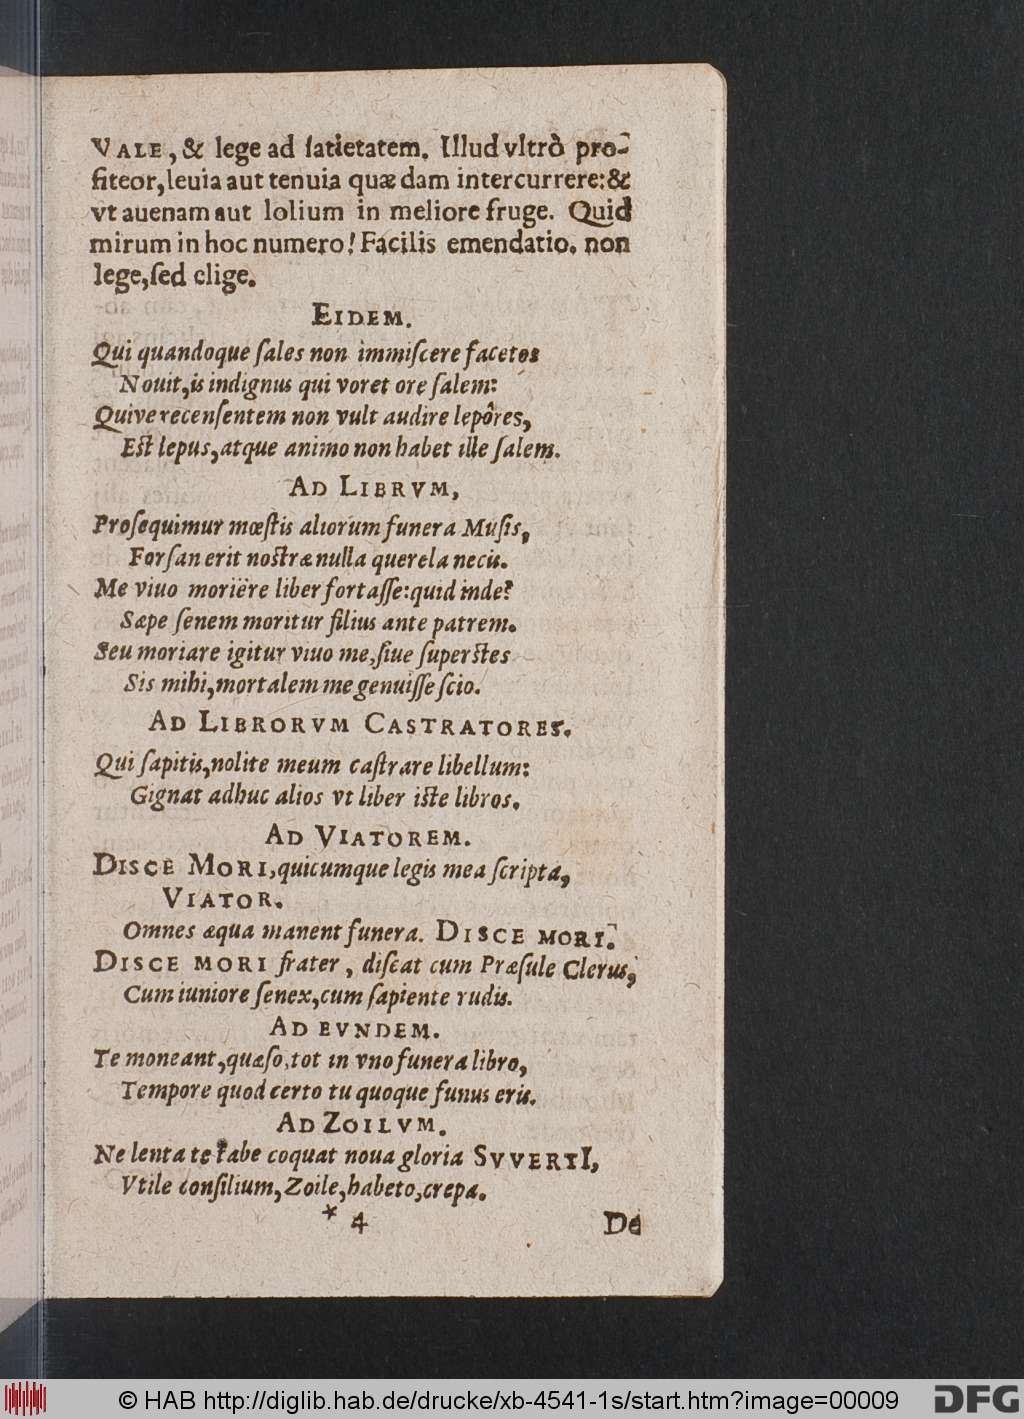 VALE, & lege ad ſatietatem. Illud vltrò pro-
fiteor, leuia aut tenuia quædam intercurrere: &
vt auenam aut lolium in meliore fruge. Quid
mirum in hoc numero! Facilis emendatio. non
lege, ſed elige.
EIDEM.
Qui quandoque ſales non immiſcere facetos
Nouit, is indignus qui voret ore ſalem:
Quive recenſentem non vult audire lepôres,
Eſt lepus, atque animo non habet ille ſalem.
AD LIBRVM,
Proſequimur mœſtis aliorum funera Muſis,
Forſan erit noſtræ nulla querela necis.
Me viuo moriêre liber fortaſſe: quid inde?
Sæpe ſenem moritur filius ante patrem.
Seu moriare igitur viuo me, ſiue ſuperſtes
Sis mihi, mortalem me genuiſſe ſcio.
AD LIBRORVM CASTRATORES.
Qui ſapitis, nolite meum caſtrare libellum:
Gignat adhuc alios vt liber iſte libros.
AD VIATOREM.
DISCE MORI, quicumque legis mea ſcripta,
VIATOR.
Omnes æqua manent funera. DISCE MORI.
DISCE MORI frater, diſcat cum Præſule Clerus,
Cum iuniore ſenex, cum ſapiente rudis.
AD EVNDEM.
Te moneant, quæſo, tot in vno funera libro,
Tempore quod certo tu quoque funus eris.
AD ZOILVM.
Ne lenta te tabe coquat noua gloria SVVERTI,
Vtile conſilium, Zoile, habeto, crepa.
* 4 De
© HAB http://diglib.hab.de/drucke/xb-4541-1s/start.htm?image=00009 DFG